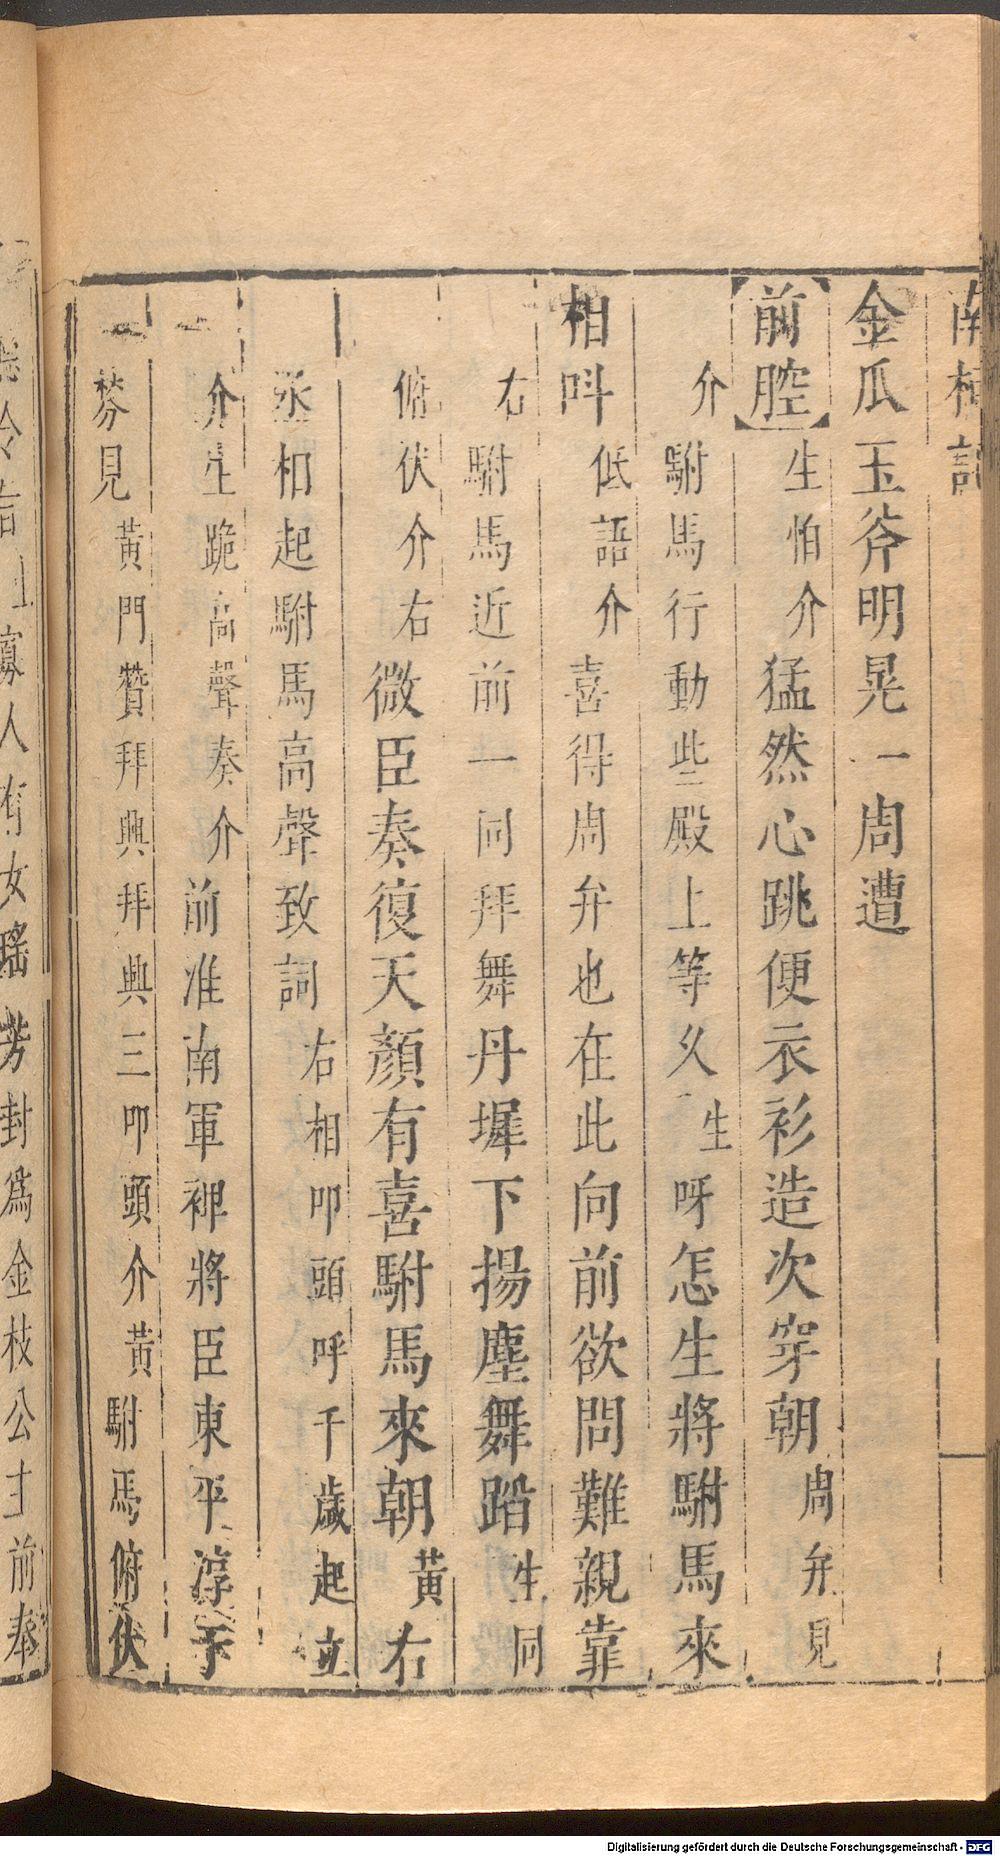 南柯記
金瓜玉斧明晃一周遭
【前腔】生怕介猛然心跳便衣衫造次穿朝周弁見
介駙馬行動些殿上等久生呀怎生將駙馬來
相呌低語介喜得周弁也在此向前欲問難親靠
右駙馬近前一同拜舞丹墀下揚塵舞蹈生同
俯伏介右微臣奏復天顏有喜駙馬來朝黃右
丞相起駙馬高聲致詞右相叩頭呼千歲起立
介生跪高聲奏介前淮南軍裨將臣東平淳于
棼見黃門贊拜興拜興三叩頭介黃駙馬俯伏
寡人有女瑤芳封爲金枝公主前奉
Digitalisierung gefördert durch die Deutsche Forschungsgemeinschaft - DFG